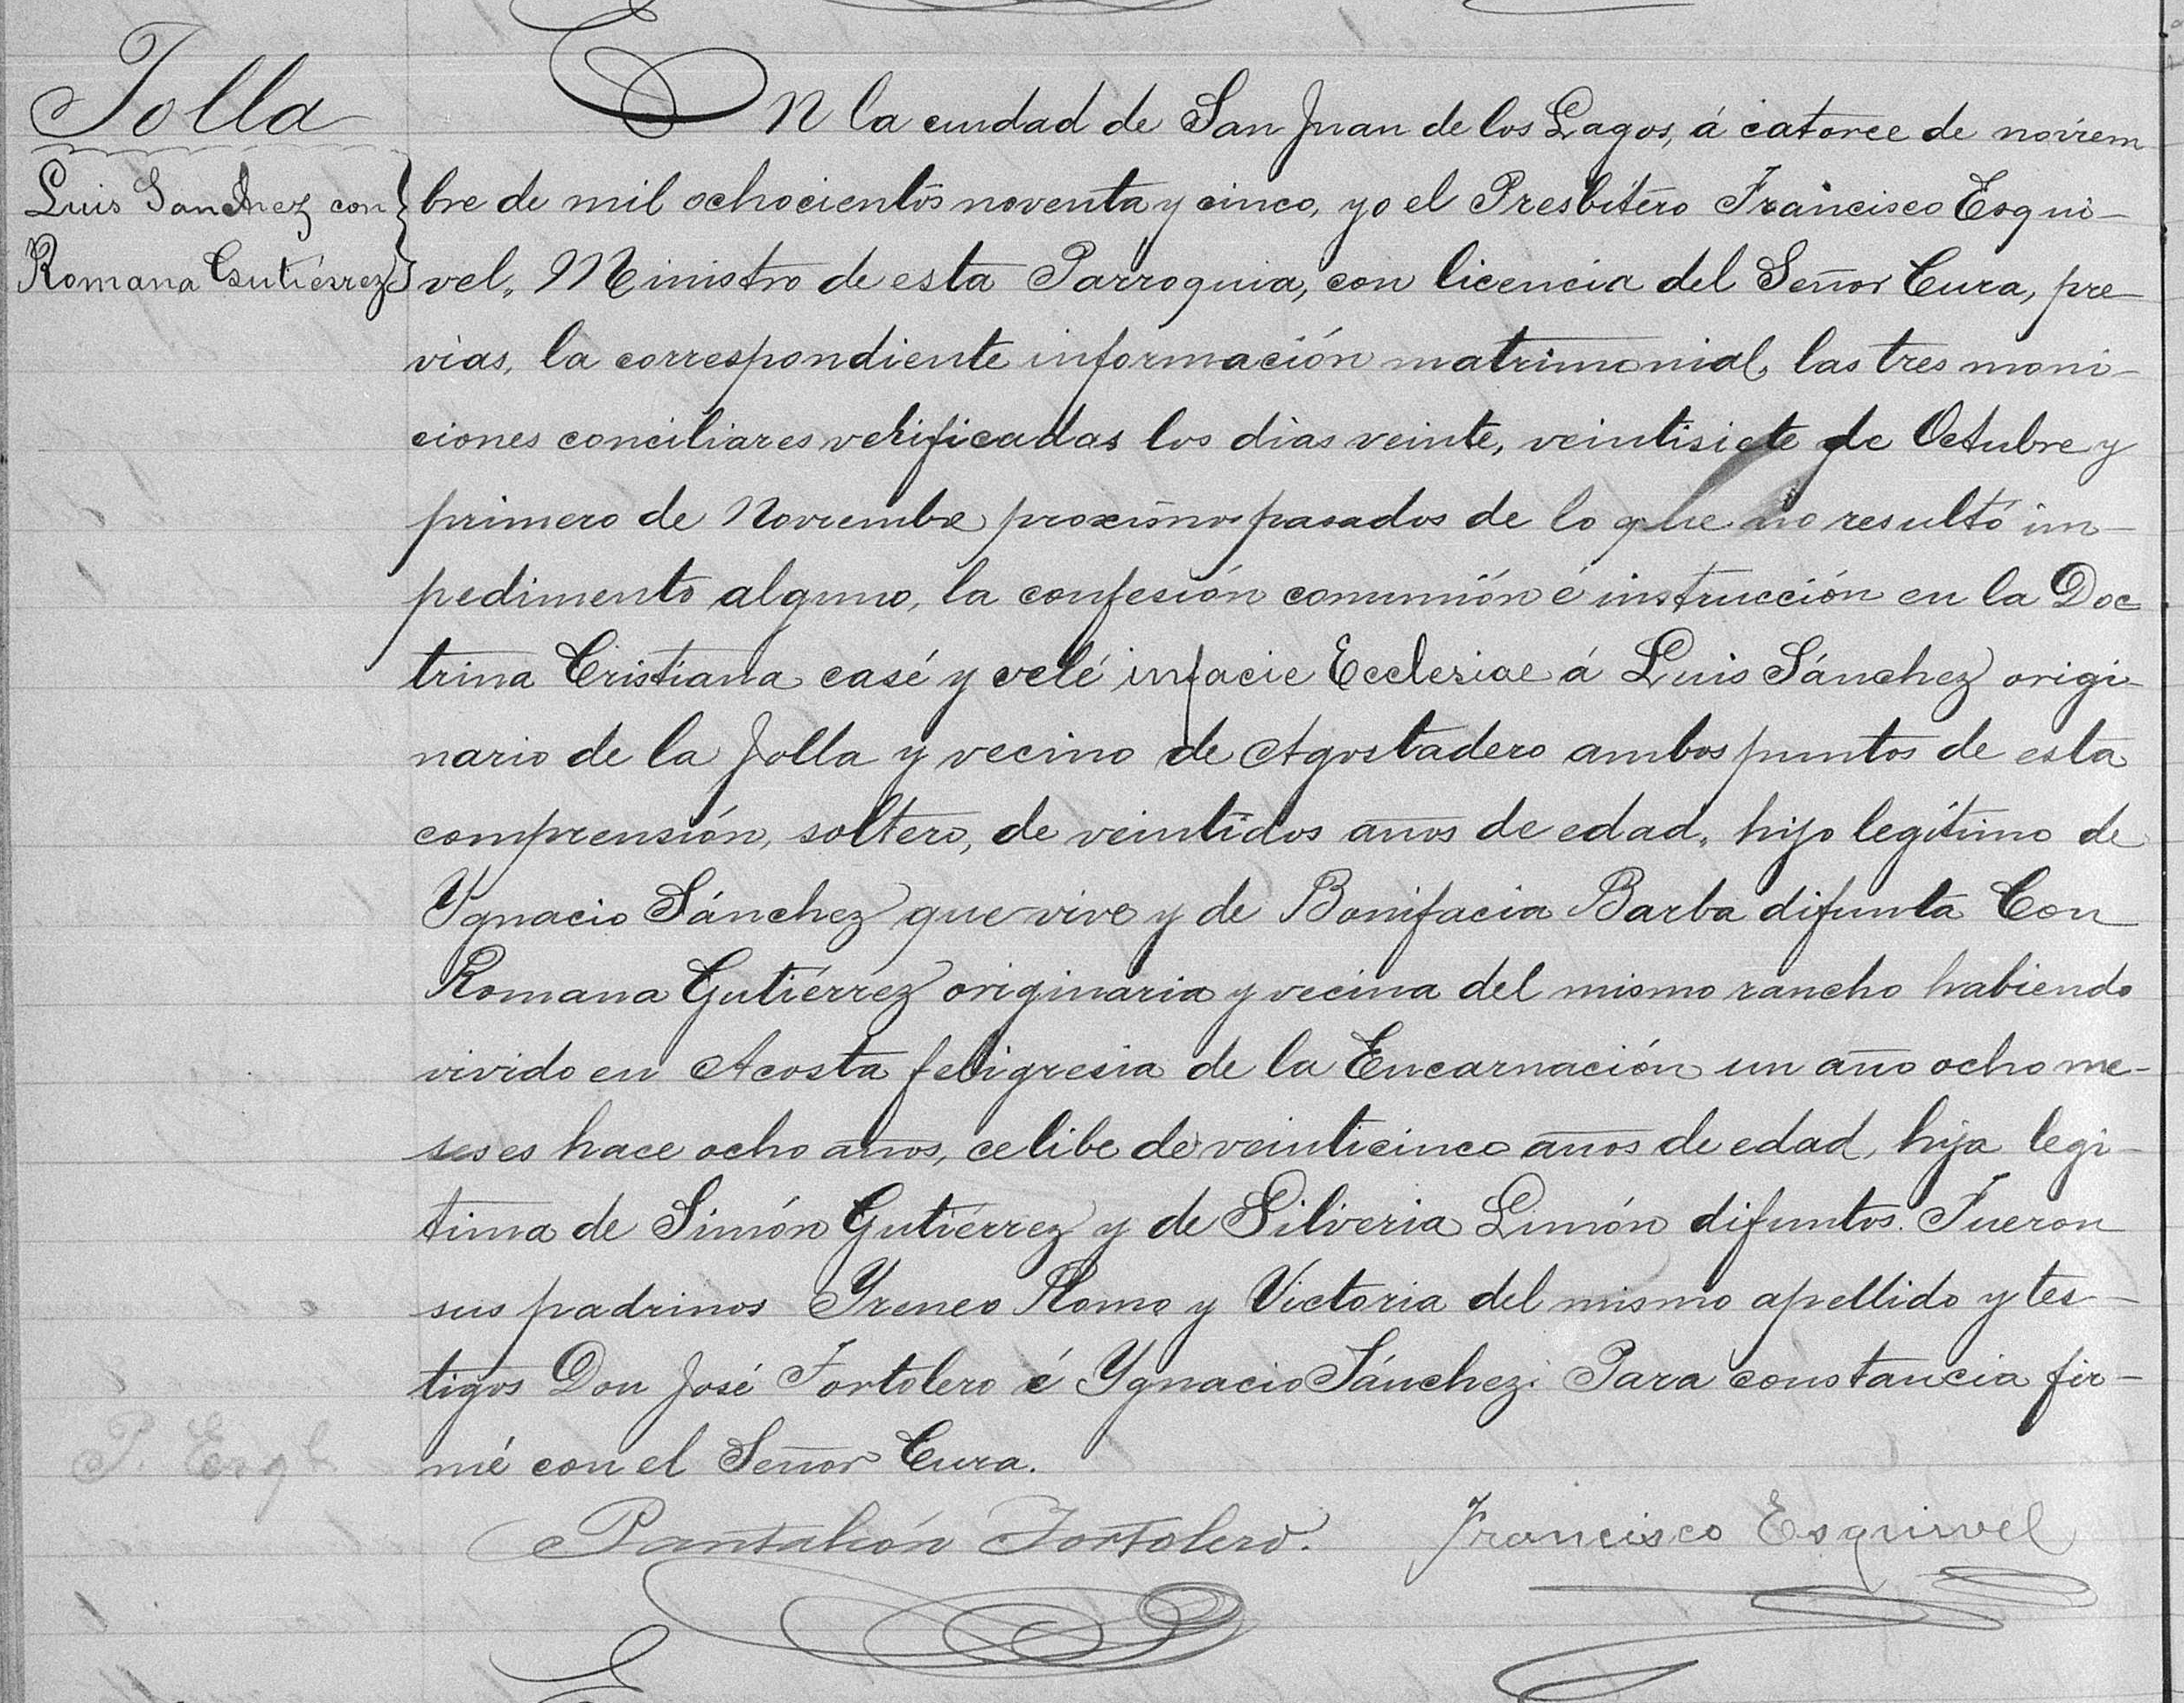 Jolla
Luis Sanchez con
Romana Gutiérrez
En la ciudad de San Juan de los Lagos, á catorce de noviem
bre de mil ochocientos noventa y cinco, yo el Presbítero Francisco Esqui-
vel, Ministro de esta Parroquia, con licencia del Señor Cura, pre-
vias, la correspondiente información matrimonial, las tres moni-
ciones conciliares verificadas los dias veinte, veintisiete de Octubre y
primero de Noviembre proximos pasados de lo que no resultó im-
pedimento alguno, la confesión comunión é instrucción en la Doc
trina Cristiana casé y velé infacie Ecclesiae á Luis Sánchez origi-
nario de la Jolla y vecino de Agostadero ambos puntos de esta
comprensión, soltero, de veintidos años de edad, hijo legítimo de
Ygnacio Sánchez que vive y de Bonifacia Barba difunta Con
Romana Gutiérrez originaria y vecina del mismo rancho habiendo
vivido en Acosta feligresia de la Encarnación un año ocho me-
ses es hace ocho años, celibe de veinticinco años de edad, hija legi-
tima de Simón Gutiérrez y de Silveria Limón difuntos. Fueron
sus padrinos Yreneo Romo y Victoria del mismo apellido y tes-
tigos Don José Tortolero é Ygnacio Sánchez. Para constancia fir-
mé con el Señor Cura.
P. Esql.
Pantaleón Tortolero. Francisco Esquivel